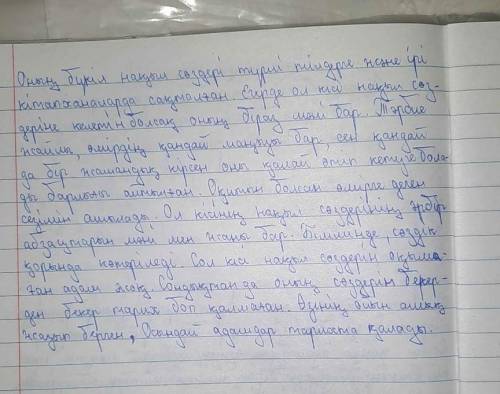 Оның бүкіл нақыл сөздері түрлі тілдерге және ірі
кітапханаларда сақталған. Егерде ол кісі нақыл сөз-
деріне келетін болсақ оның біраз мәні бар. Тәрбие
жайлы, өмірдің қандай маңызы бар, сен қандай
да бір жамандыққа кірсең оны қалай өтіп кетуге бола-
ды барлығы айтылған. Оқитын болсаң өмірге деген
сезімің ашылады. Ол кісінің нақыл сөздерінің әрбір
абзацтарын мәні мен жаны бар. Білімінде, сөздік
қорында көтеріледі. Сол кісі нақыл сөздерін оқыма-
ған адам жоқ. Сондықтан да оның сөздерін бекер-
ден бекер тарих боп қалмаған. Өзінің ойын ашық
жазып берген, Осындай адамдар тарихта қалады.